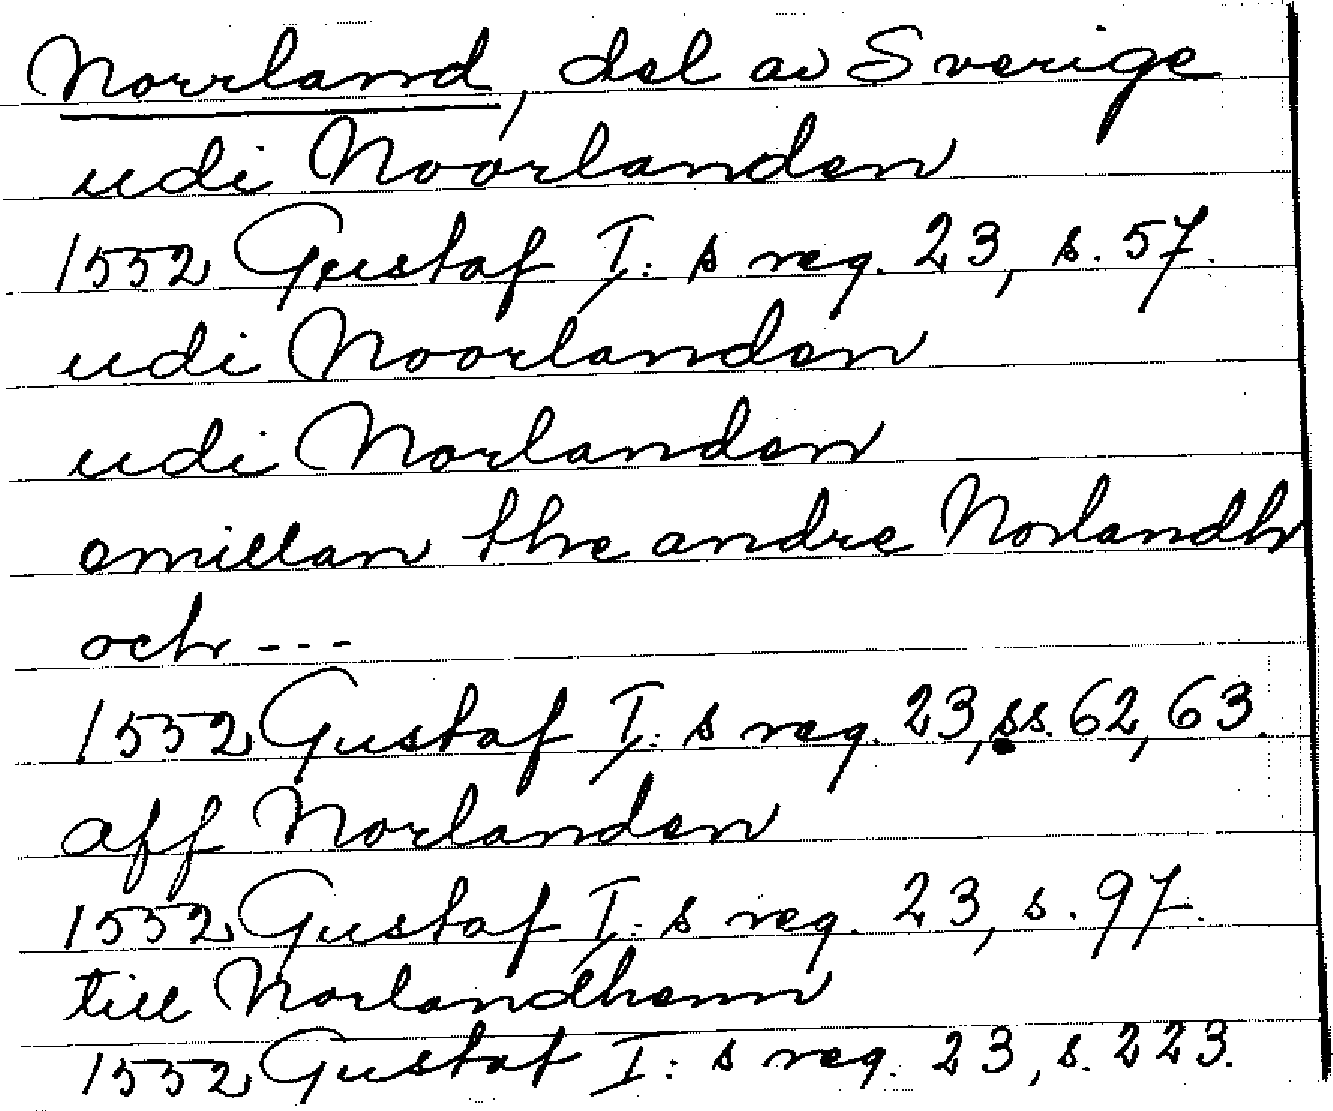 Norrland, del av Sverige
udi Noorlanden
1552 Gustaf I:s reg. 23, s. 57.
udi Noorlanden
udi Norlanden
emillan the andre Norlandh
och ---
1552 Gustaf I:s reg. 23, ss. 62, 63.
aff Norlanden
1552 Gustaf I:s reg. 23, s. 97.
till Norlandhenn
1552 Gustaf I:s reg. 23, s. 223.